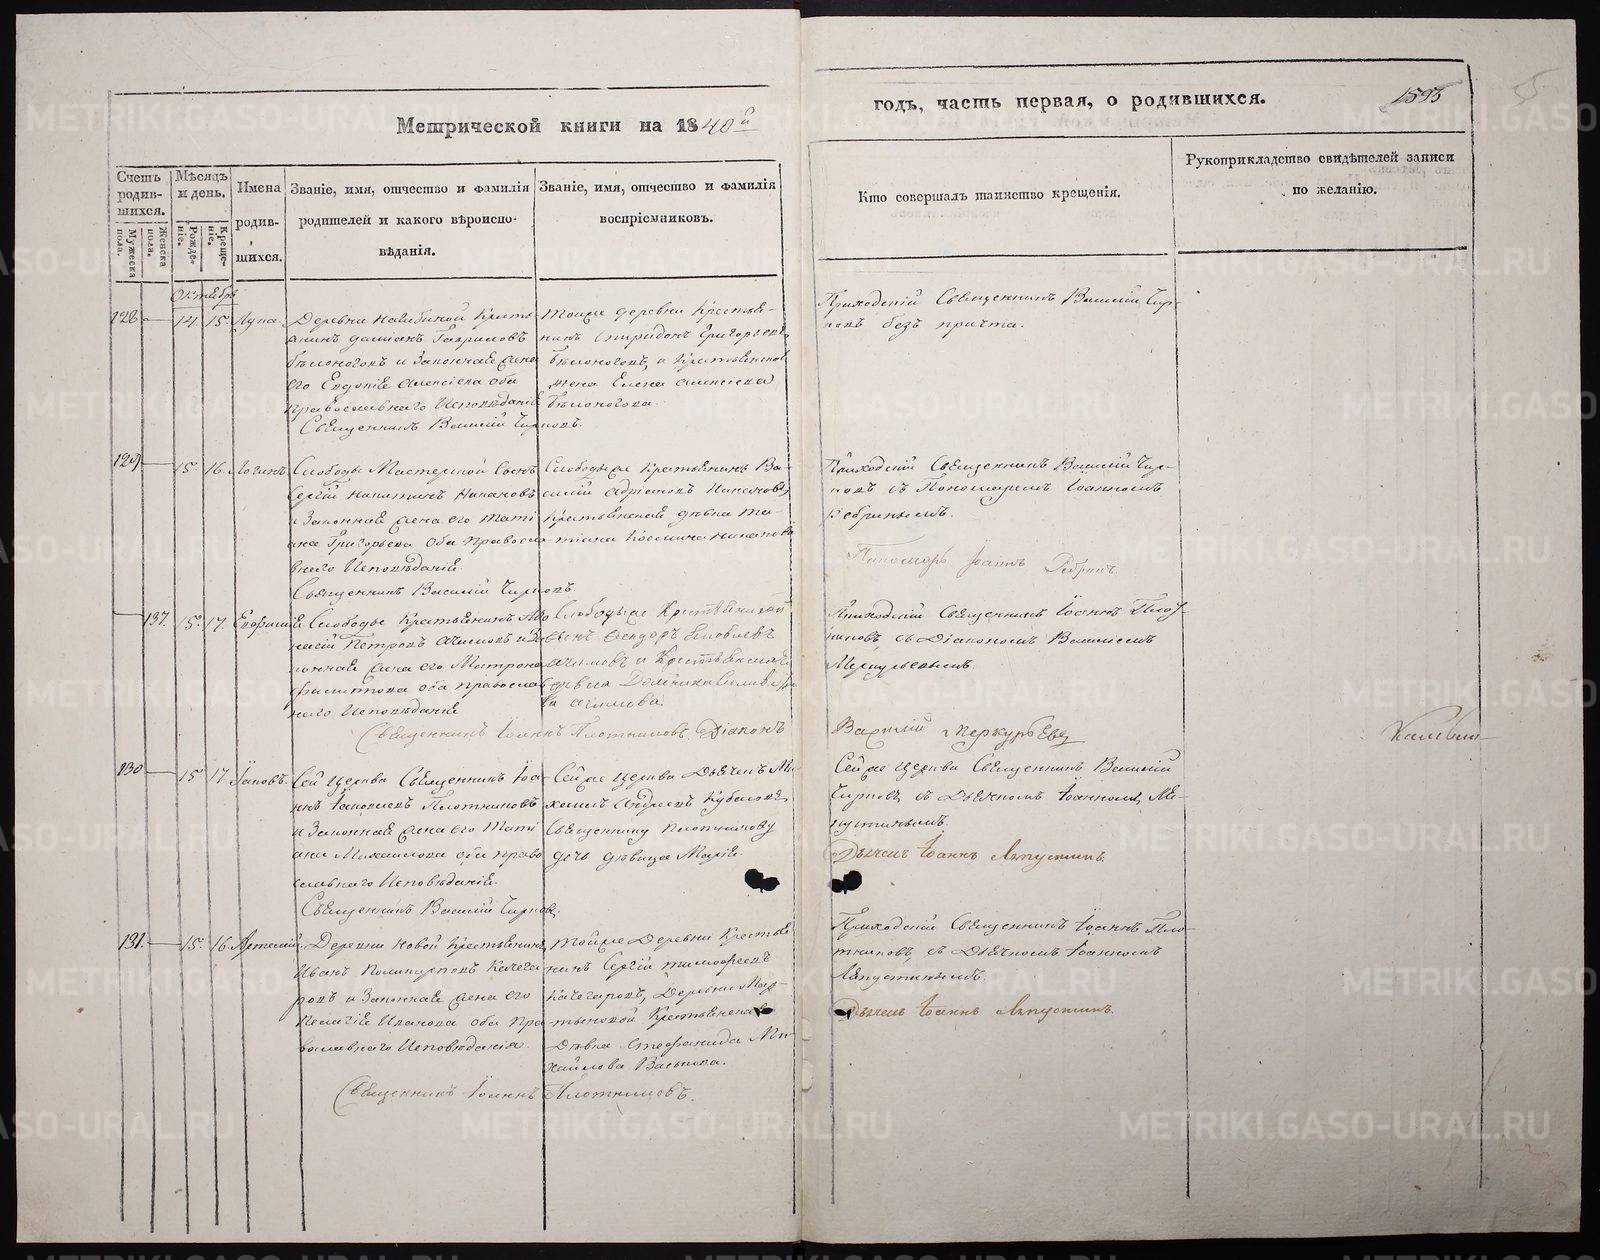 Метрической книги на 1840й
годъ, часть первая, о родившихся.
1595
Счетъ родив-шихся.
Мужеска пола.
Женска пола.
Мѣсяцъ и день.
Рожде-ніе.
Креще-ніе.
Имена родив-шихся.
Званіе, имя, отчество и фамилія
родителей и какого вѣроиспо-
вѣданія.
Званіе, имя, отчество и фамилія
воспріемниковъ.
Кто совершалъ таинство крещенія.
Рукоприкладство свидѣтелей записи
по желанію.
Октябрь
128 14. 15. Лупа.
Деревни Крестья-
анинъ Даміанъ Гавриловъ
Бѣлоноговъ и Законная жена
его Евдокія Алексіева оба
Православнаго Исповѣданія
Священникъ Василій Чирковъ.
Тойже деревни Крестьян-
нинъ Спиридонъ Григорьевъ
Бѣлоноговъ, и Крестьянская
жена Елена Алексіева
Бѣлоногова.
Приходскій Священникъ Василій Чир-
ковъ безъ причта.
129 15. 16. Логинъ
Слободы Мастерской Сынъ
Сергій Никитинъ
и Законная жена его Тати
ана Григорьева оба Правосла-
внаго Исповѣданія.
Священникъ Василій Чирковъ.
Слободы же Крестьянинъ Ва-
силій Адріановъ
Крестьянская дѣвка Та-
тіана Косьмина
Приходскій Священникъ Василій Чир-
ковъ съ Пономаремъ Іоанномъ
Пономарь Іоаннъ
137. 15. 17. Евфимія
Слободы Крестьянинъ
Петровъ Ачимовъ и За-
конная жена его Матрона
Филиппова оба православ
наго Исповѣданія
Слободы же Крестьянскій
сынъ Феодоръ Яковлевъ
Ачимовъ и Крестьянская
дѣвка Домника
Ачимова.
Священникъ Іоаннъ Плотниковъ Діаконъ
Василій Меркурьевъ
Приходскій Священникъ Іоаннъ Плот
никовъ съ Діакономъ Василіемъ
Меркурьевымъ
130 15 17 Іаковъ
Сей Церкви Священникъ Іоа-
ннъ Іаковлевъ Плотниковъ
и Законная жена его Тати
ана Михайлова оба право
славнаго Исповѣданія.
Священникъ Василій Чирковъ.
Сей же Церкви Дьячекъ Ми-
хаилъ Андреевъ
Священнику Плотникову
дочь дѣвица Марія
Сей же Церкви Священникъ Василій
Чирковъ съ Дьячкомъ Іоанномъ Ля-
пустинымъ.
Дьячекъ Іоаннъ Ляпустинъ.
131. 15. 16. Артемій.
Деревни Новой Крестьянинъ
Иванъ Поликарповъ Качега
ровъ и Законная жена его
Пелагія Иванова оба Пра
вославнаго Исповѣданія.
Тойже Деревни Крестья
нинъ Сергій Тимофеевъ
Качегаровъ, Деревни Мар-
тыновой Крестьянская
Дѣвка Стефанида Ми-
хайлова Васькова.
Священникъ Іоаннъ Плотниковъ.
Приходскій Священникъ Іоаннъ Пло-
тниковъ съ Дьячкомъ Іоанномъ
Ляпустинымъ.
Дьячекъ Іоаннъ Ляпустинъ.
METRIKI.GASO-URAL.RU